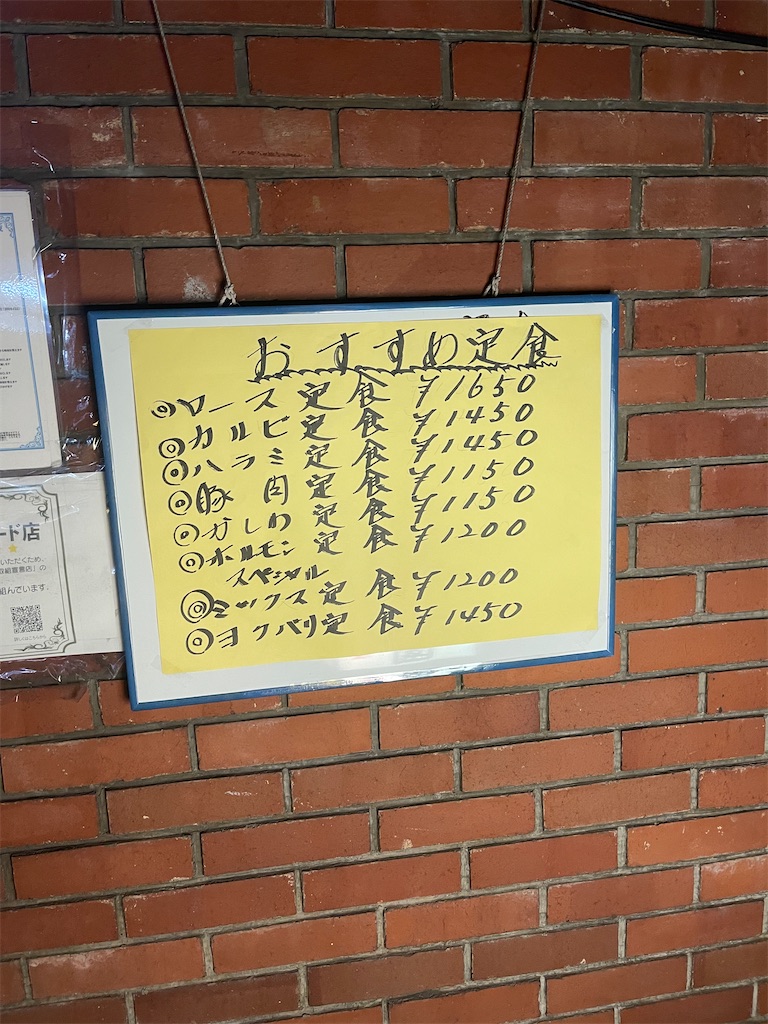 おすすめ定食
◎ロース定食 ¥1650
◎カルビ定食 ¥1450
◎ハラミ定食 ¥1450
◎豚肉定食 ¥1150
◎かしわ定食 ¥1150
◎ホルモン定食 ¥1200
スペシャル
◎ミックス定食 ¥1200
◎ヨクバリ定食 ¥1450
ード店
いただくため、
組んでいます。